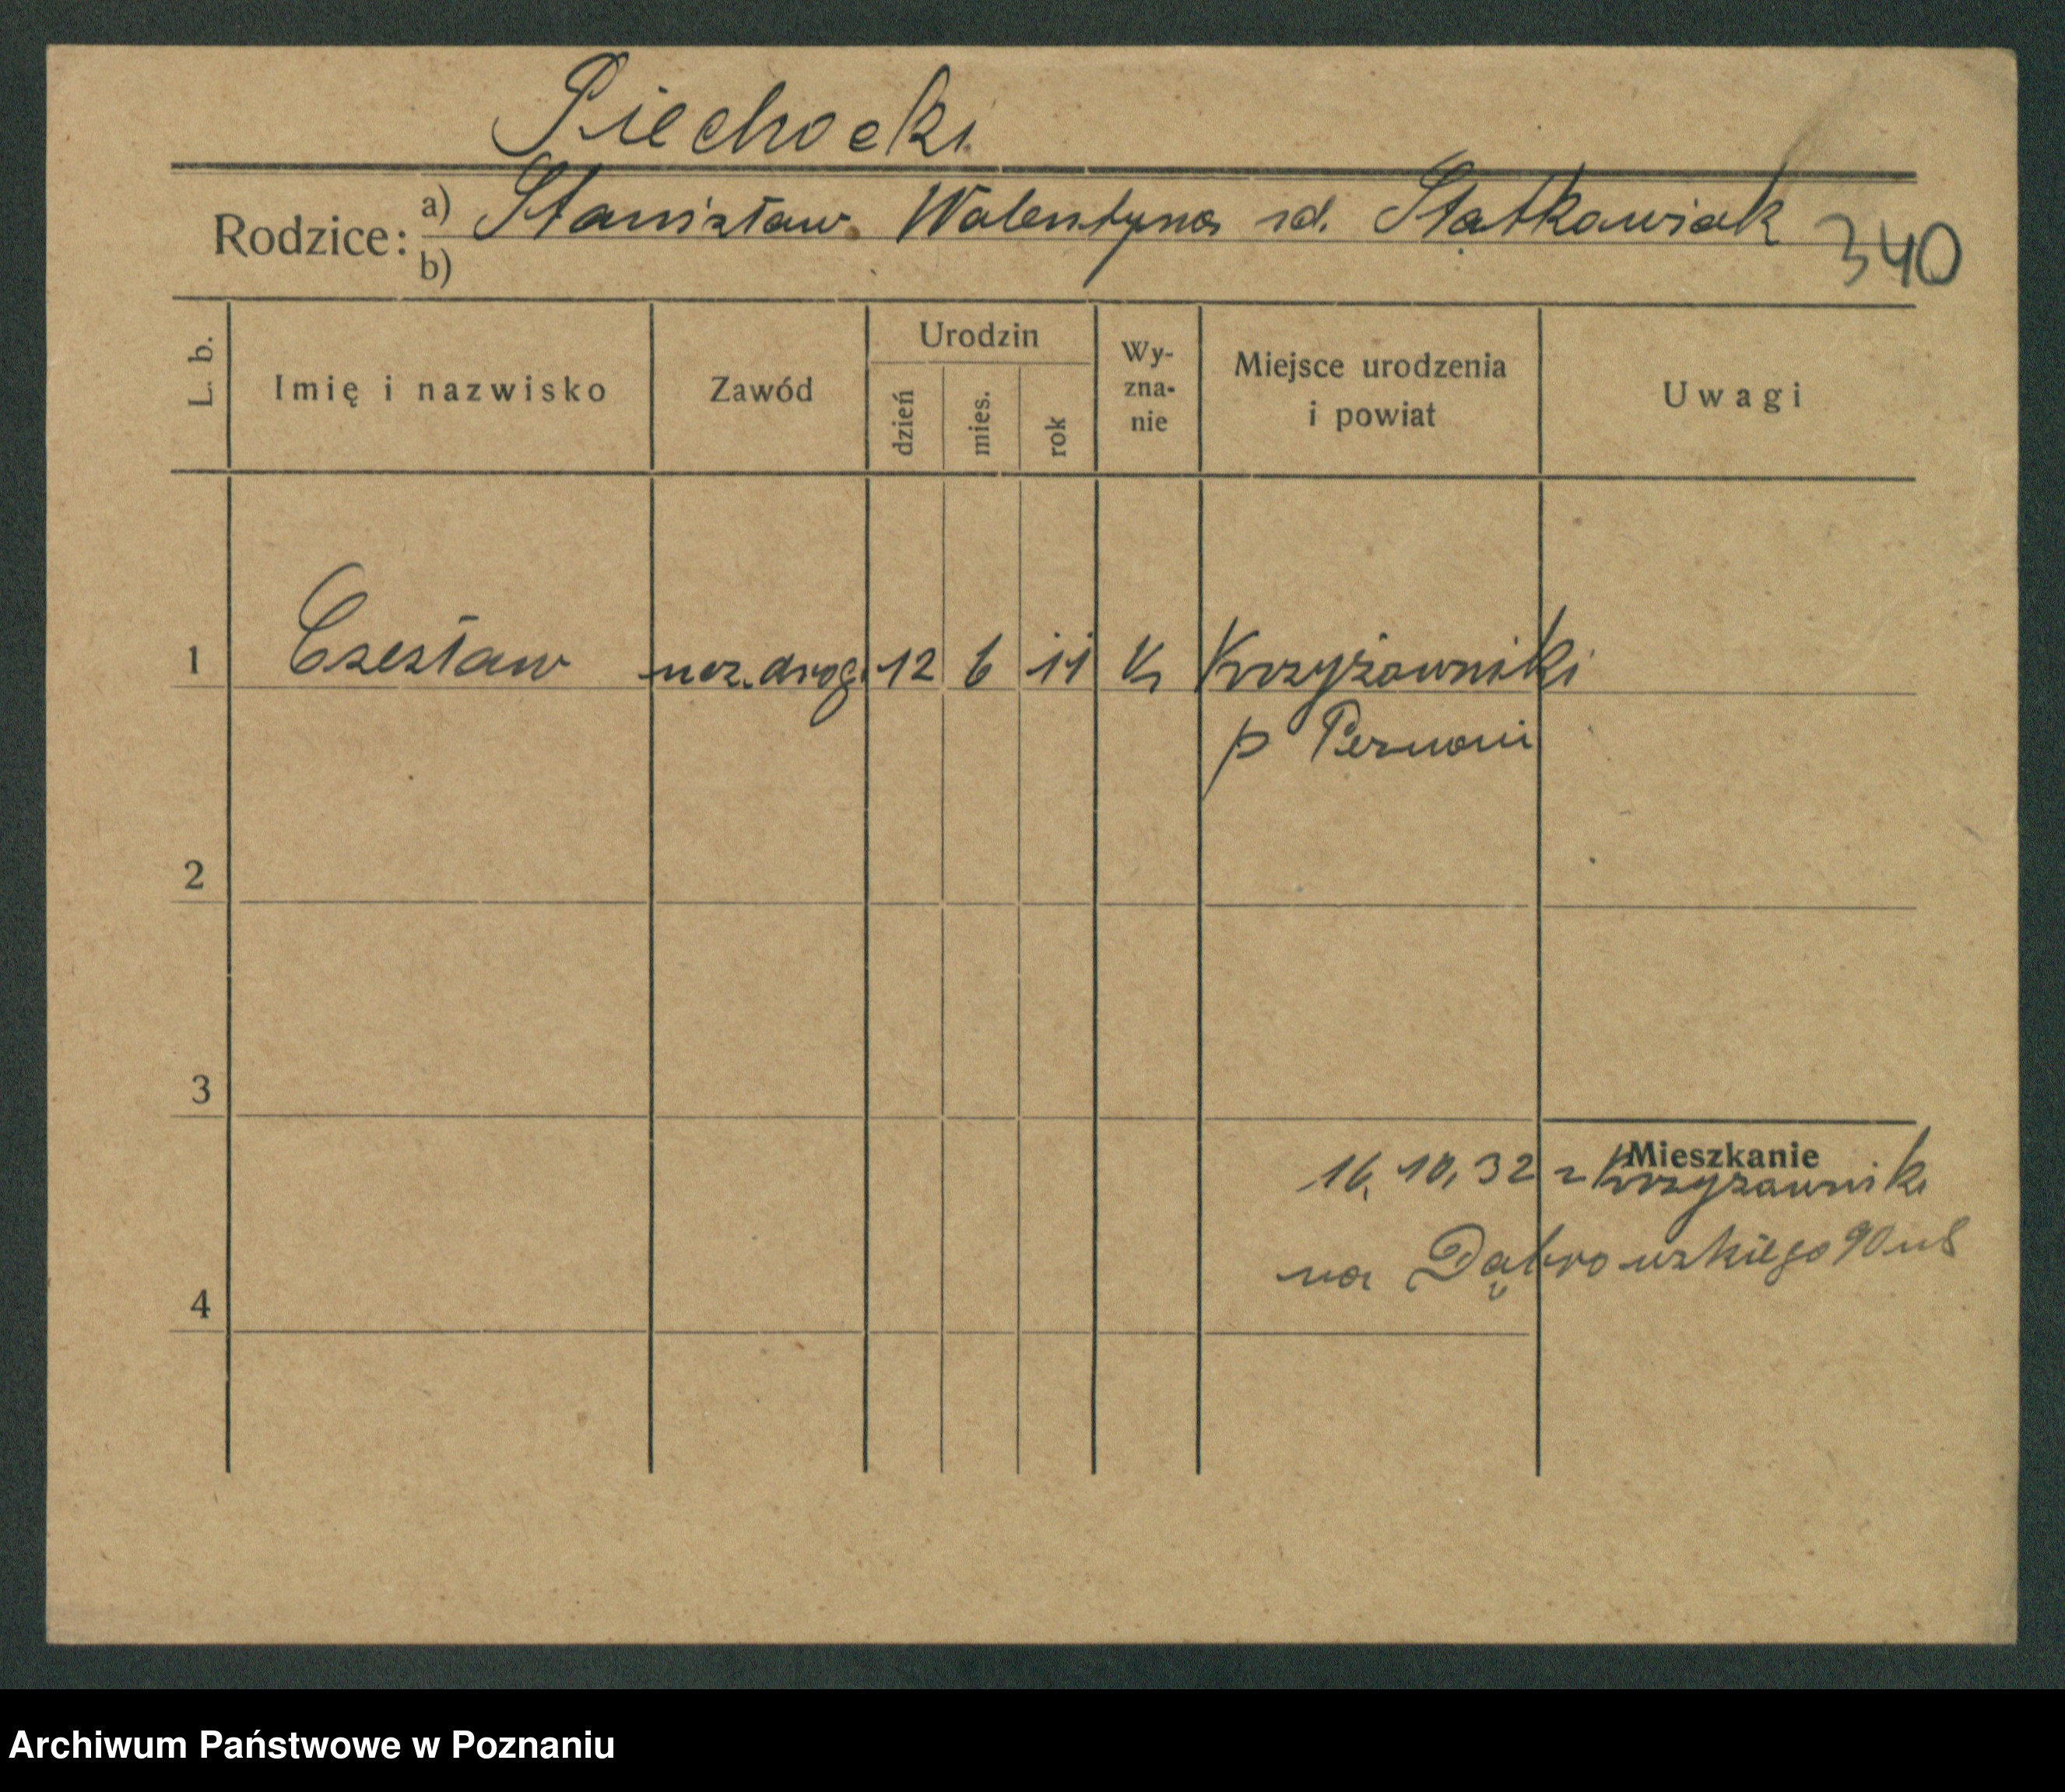 Piechocki
Rodzice: a) Stanisław Walentyna rd. Statkowiak
b)
340
L. b.
Imię i nazwisko
Zawód
Urodzin
dzień
mies.
rok
Wy-
zna-
nie
Miejsce urodzenia
i powiat
Uwagi
1 Czesław ucz. drog. 12 6 11 K Krzyżowniki
p Poznani
2
3
Mieszkanie
16. 10. 32 z Krzyżownik
na Dąbrowskiego 90 m8
4
Archiwum Państwowe w Poznaniu